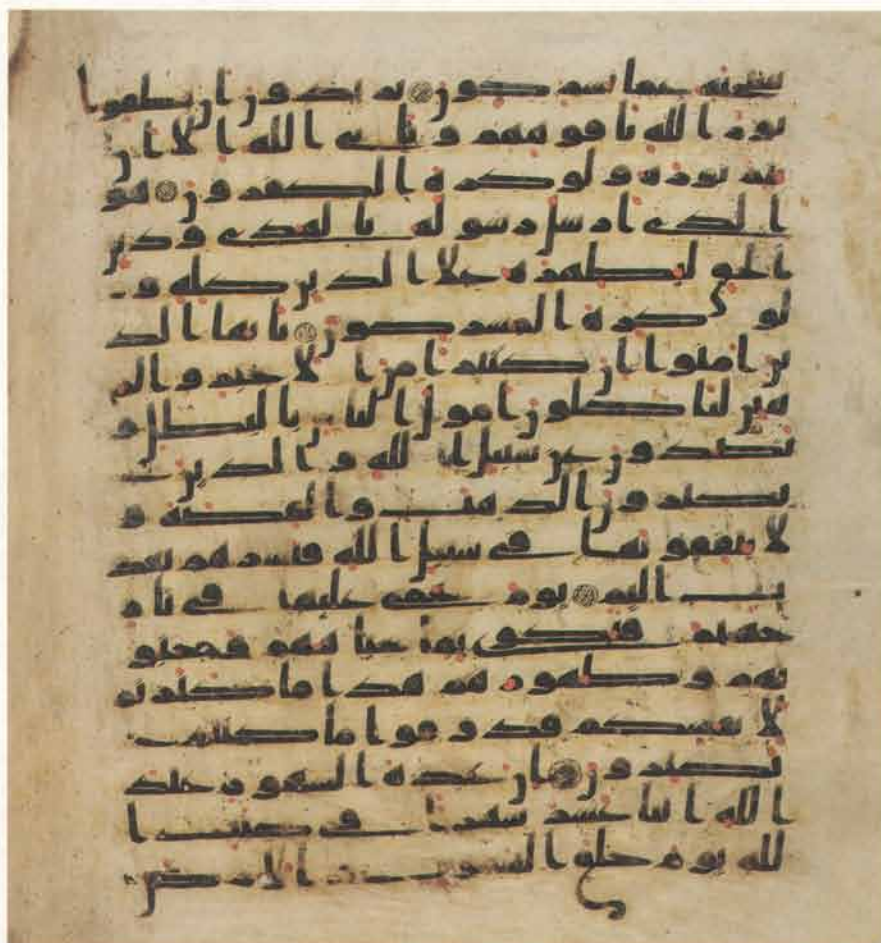 سبحنه عما يشركون يريدون ان يطفوا
نور الله بافوههم ويابى الله الا ان
يتم نوره ولو كره الكفرون هو
الذى ارسل رسوله بالهدى ودين
الحق ليظهره على الدين كله و
لو كره المشركون يايها الذ
ين امنوا ان كثيرا من الاحبر والر
هبن لياكلون امول الناس بالبطل و
يصدون عن سبيل الله والذين
يكنزون الذهب والفضة و
لا ينفقونها فى سبيل الله فبشرهم بعذ
ب اليم يوم يحمى عليها فى نار
جهنم فتكوى بها جباههم وجنو
بهم وظهورهم هذا ما كنزتم
لانفسكم فذوقوا ما كنتم
تكنزون ان عدة الشهور عند
الله اثنا عشر شهرا فى كتب ا
لله يوم خلق السموت والارض